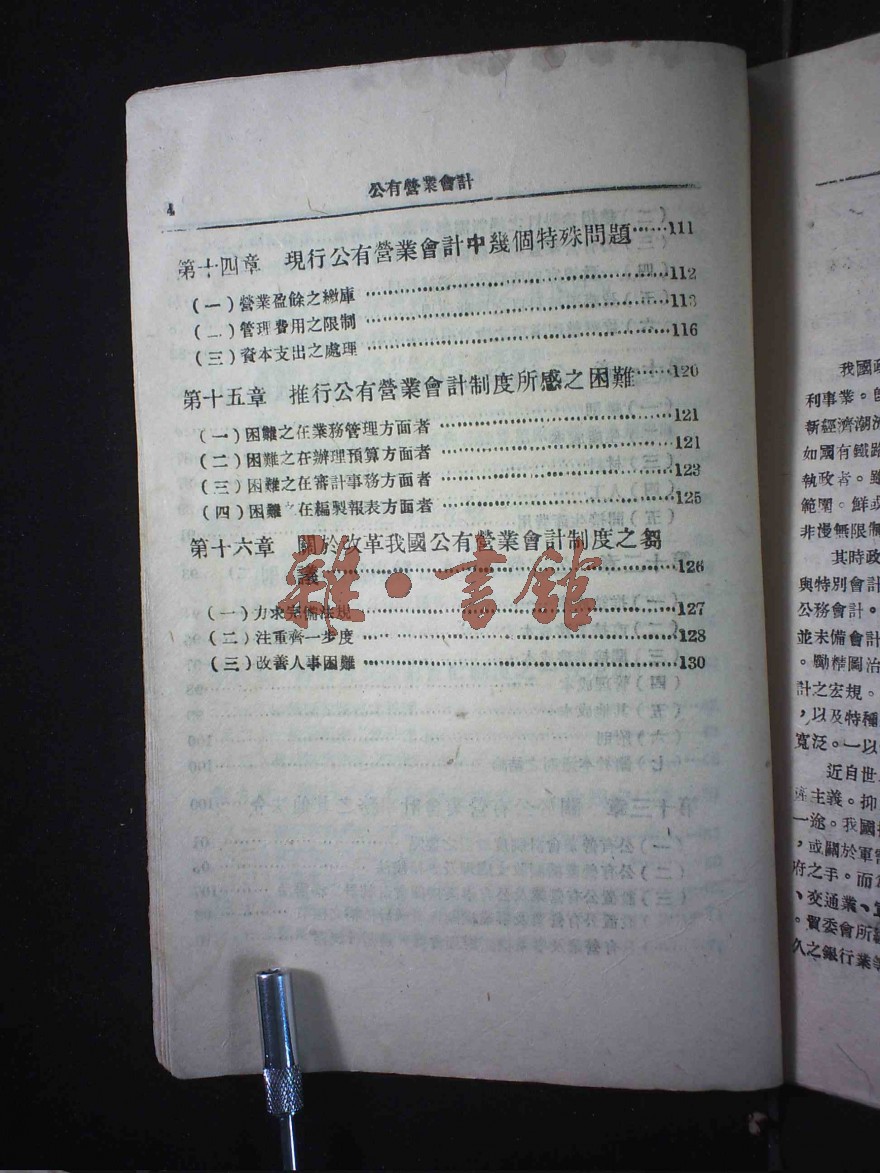 4
公有營業會計
第十四章　現行公有營業會計中幾個特殊問題……111
(一)營業盈餘之繳庫……112
(二)管理費用之限制……113
(三)資本支出之處理……116
第十五章　推行公有營業會計制度所感之困難……120
(一)困難之在業務管理方面者……121
(二)困難之在辦理預算方面者……121
(三)困難之在審計事務方面者……123
(四)困難之在編製報表方面者……125
第十六章　關於改革我國公有營業會計制度之芻
議……126
(一)力求完備法規……127
(二)注重齊一步度……128
(三)改善人事困難……130
雜·書館
我國
利事業。
新經濟潮
如國有鐵路
執政者。
範圍。鮮
非漫無限
其時政
與特別會計
公務會計。
並未備會計
。勵精圖治
計之宏規。
,以及特種
寬泛。一以
近自世
主義。抑
一途。我國
,或關於軍
府之手。而
、交通業、
。貿委會所
久之銀行業